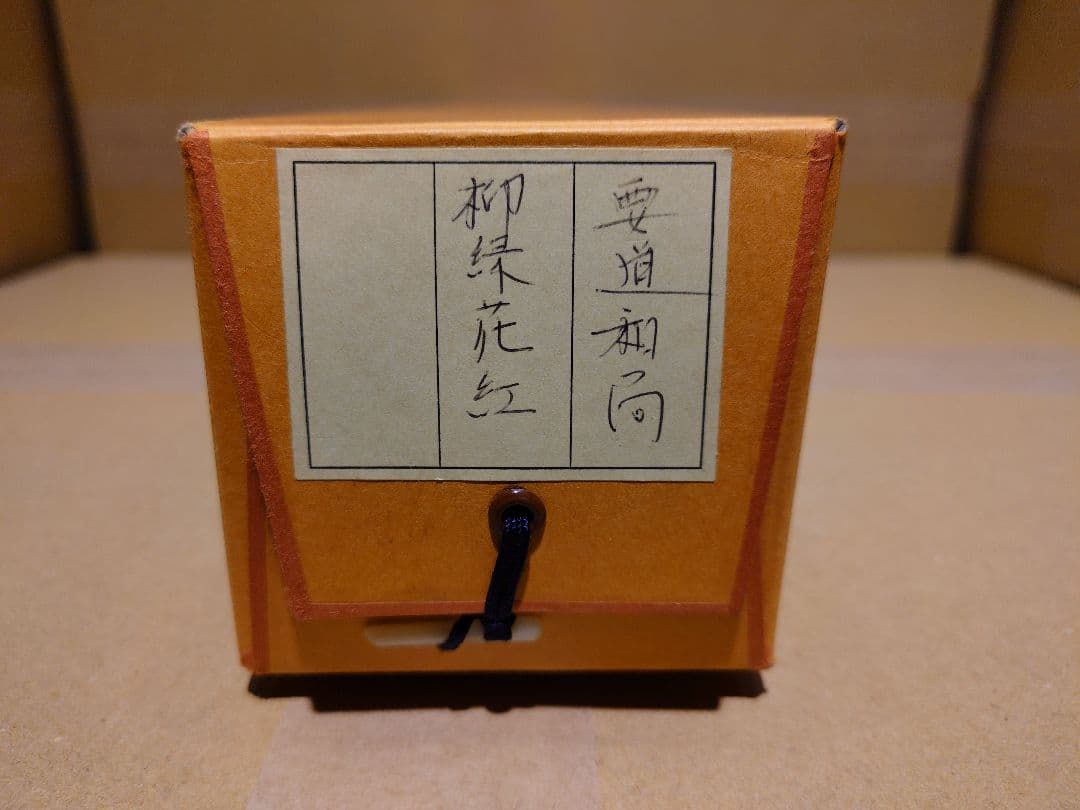 要道和尚
柳緑花紅